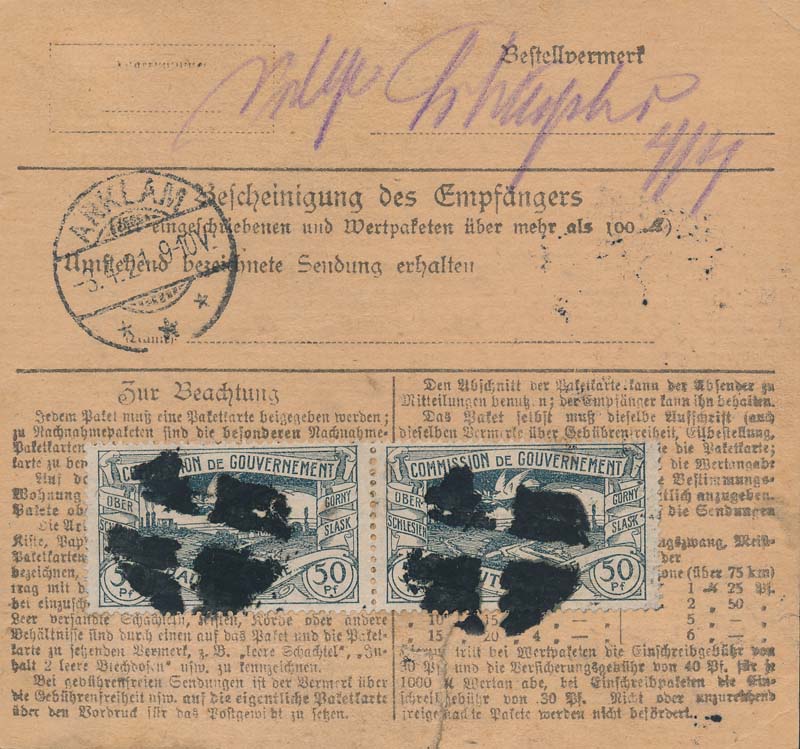 Bestellvermerk
Bescheinigung des Empfängers
eingeschriebenen und Wertpaketen über mehr als 100 ℳ)
Umstehend bezeichnete Sendung erhalten
ANKLAM
9-10V.
Zur Beachtung
Jedem Paket muß eine Paketkarte beigegeben werden;
zu Nachnahmepaketen sind die besonderen Nachnahme-
Paketkarten
karte zu ben
Auf de
Wohnung
Pakete ob
Die Ar
Kiste, Pap
Paketkarten
bezeichnen,
trag mit d
bei einzusch
Leer versandte Schachteln, Kisten, Körbe oder andere
Behältnisse sind durch einen auf das Paket und die Paket-
karte zu setzenden Vermerk, z. B. „leere Schachtel", „In-
halt 2 leere Blechdosen" usw. zu kennzeichnen.
Bei gebührenfreien Sendungen ist der Vermerk über
die Gebührenfreiheit usw. auf die eigentliche Paketkarte
über den Vordruck für das Postgewicht zu setzen.
Den Abschnitt der Paketkarte kann der Absender zu
Mitteilungen benutz n; der Empfänger kann ihn behalten.
Das Paket selbst muß dieselbe Aufschrift (auch
dieselben Vermerke über Gebührenfreiheit, Eilbestellung,
ie die Paketkarte;
die Wertangabe
e Bestimmungs-
tlich anzugeben.
die Sendungen
gszwang, Meist-
der
one (über 75 km)
1 ℳ 25 Pf.
2 „ 50 „
„ 10 „ 15 „ 5 „ — „
„ 15 „ 20 „ 4 „ — „ 6 „ — „
tritt bei Wertpaketen die Einschreibgebühr von
30 Pf. und die Versicherungsgebühr von 40 Pf. für je
1000 ℳ Wertangabe, bei Einschreibpaketen die Ein-
schreibgebühr von 30 Pf. Nicht oder unzureichend
freigemachte Pakete werden nicht befördert.
COMMISSION DE GOUVERNEMENT
OBER GORNY
SCHLESIEN SLASK
HAUTE
50 Pf
COMMISSION DE GOUVERNEMENT
OBER GORNY
SCHLESIEN SLASK
HAUTE
50 Pf